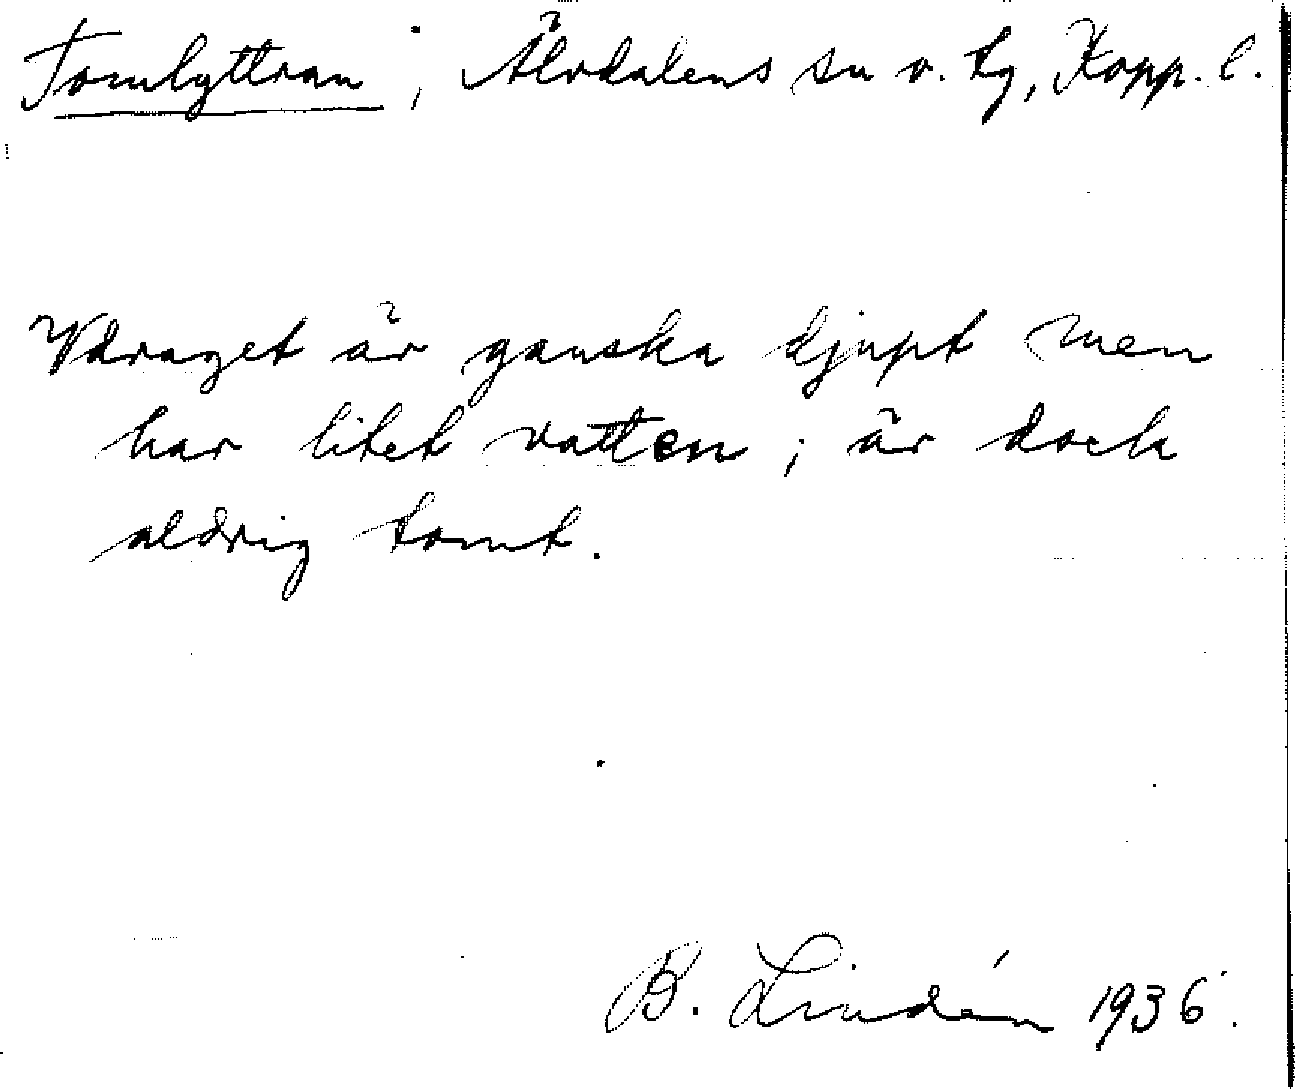 Tomlyttran ; Älvdalens sn o. tg, Kopp. l.
Vdraget är ganska djupt men
har litet vatten ; är dock
aldrig tomt.
B. Lindén 1936.